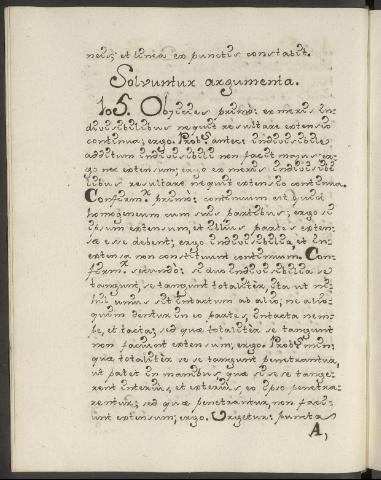 neis; et linea ex punctis constabit.
Solvuntur argumenta.
105. Objicies primò: ex meris in-
divisibilibus nequit resultare extensio
continua; ergo. Probr. antec: indivisibile
additum indivisibili non facit majus; er-
go nec extensum; ergo ex meris indivisibi-
libus resultare nequit extensio continua.
Confirm.r primò: continuum est quid
homogeneum cum suis partibus; ergo si
ipsum extensum, et illius partes exten-
sa esse debent; ergo indivisibilia, et in-
extensa non constituunt continuum. Con-
firm.r secundò: si duo indivisibilia se
tangunt, se tangunt totalitèr, ita ut ni-
hil unius sit intactum ab alio; ne alio-
quim dentur in eo partes, intacta nem-
pe, et tacta; sed quæ totalitèr se tangunt
non faciunt extensum; ergo. Probr. min:
quæ totalitèr se se tangunt penetrantur,
ut patet in manibus quæ si se se tange-
rent interiùs, et exteriùs eo ipso penetra-
rentur; sed quæ penetrantur, non faci-
unt extensum; ergo. Urgetur: puncta
A,